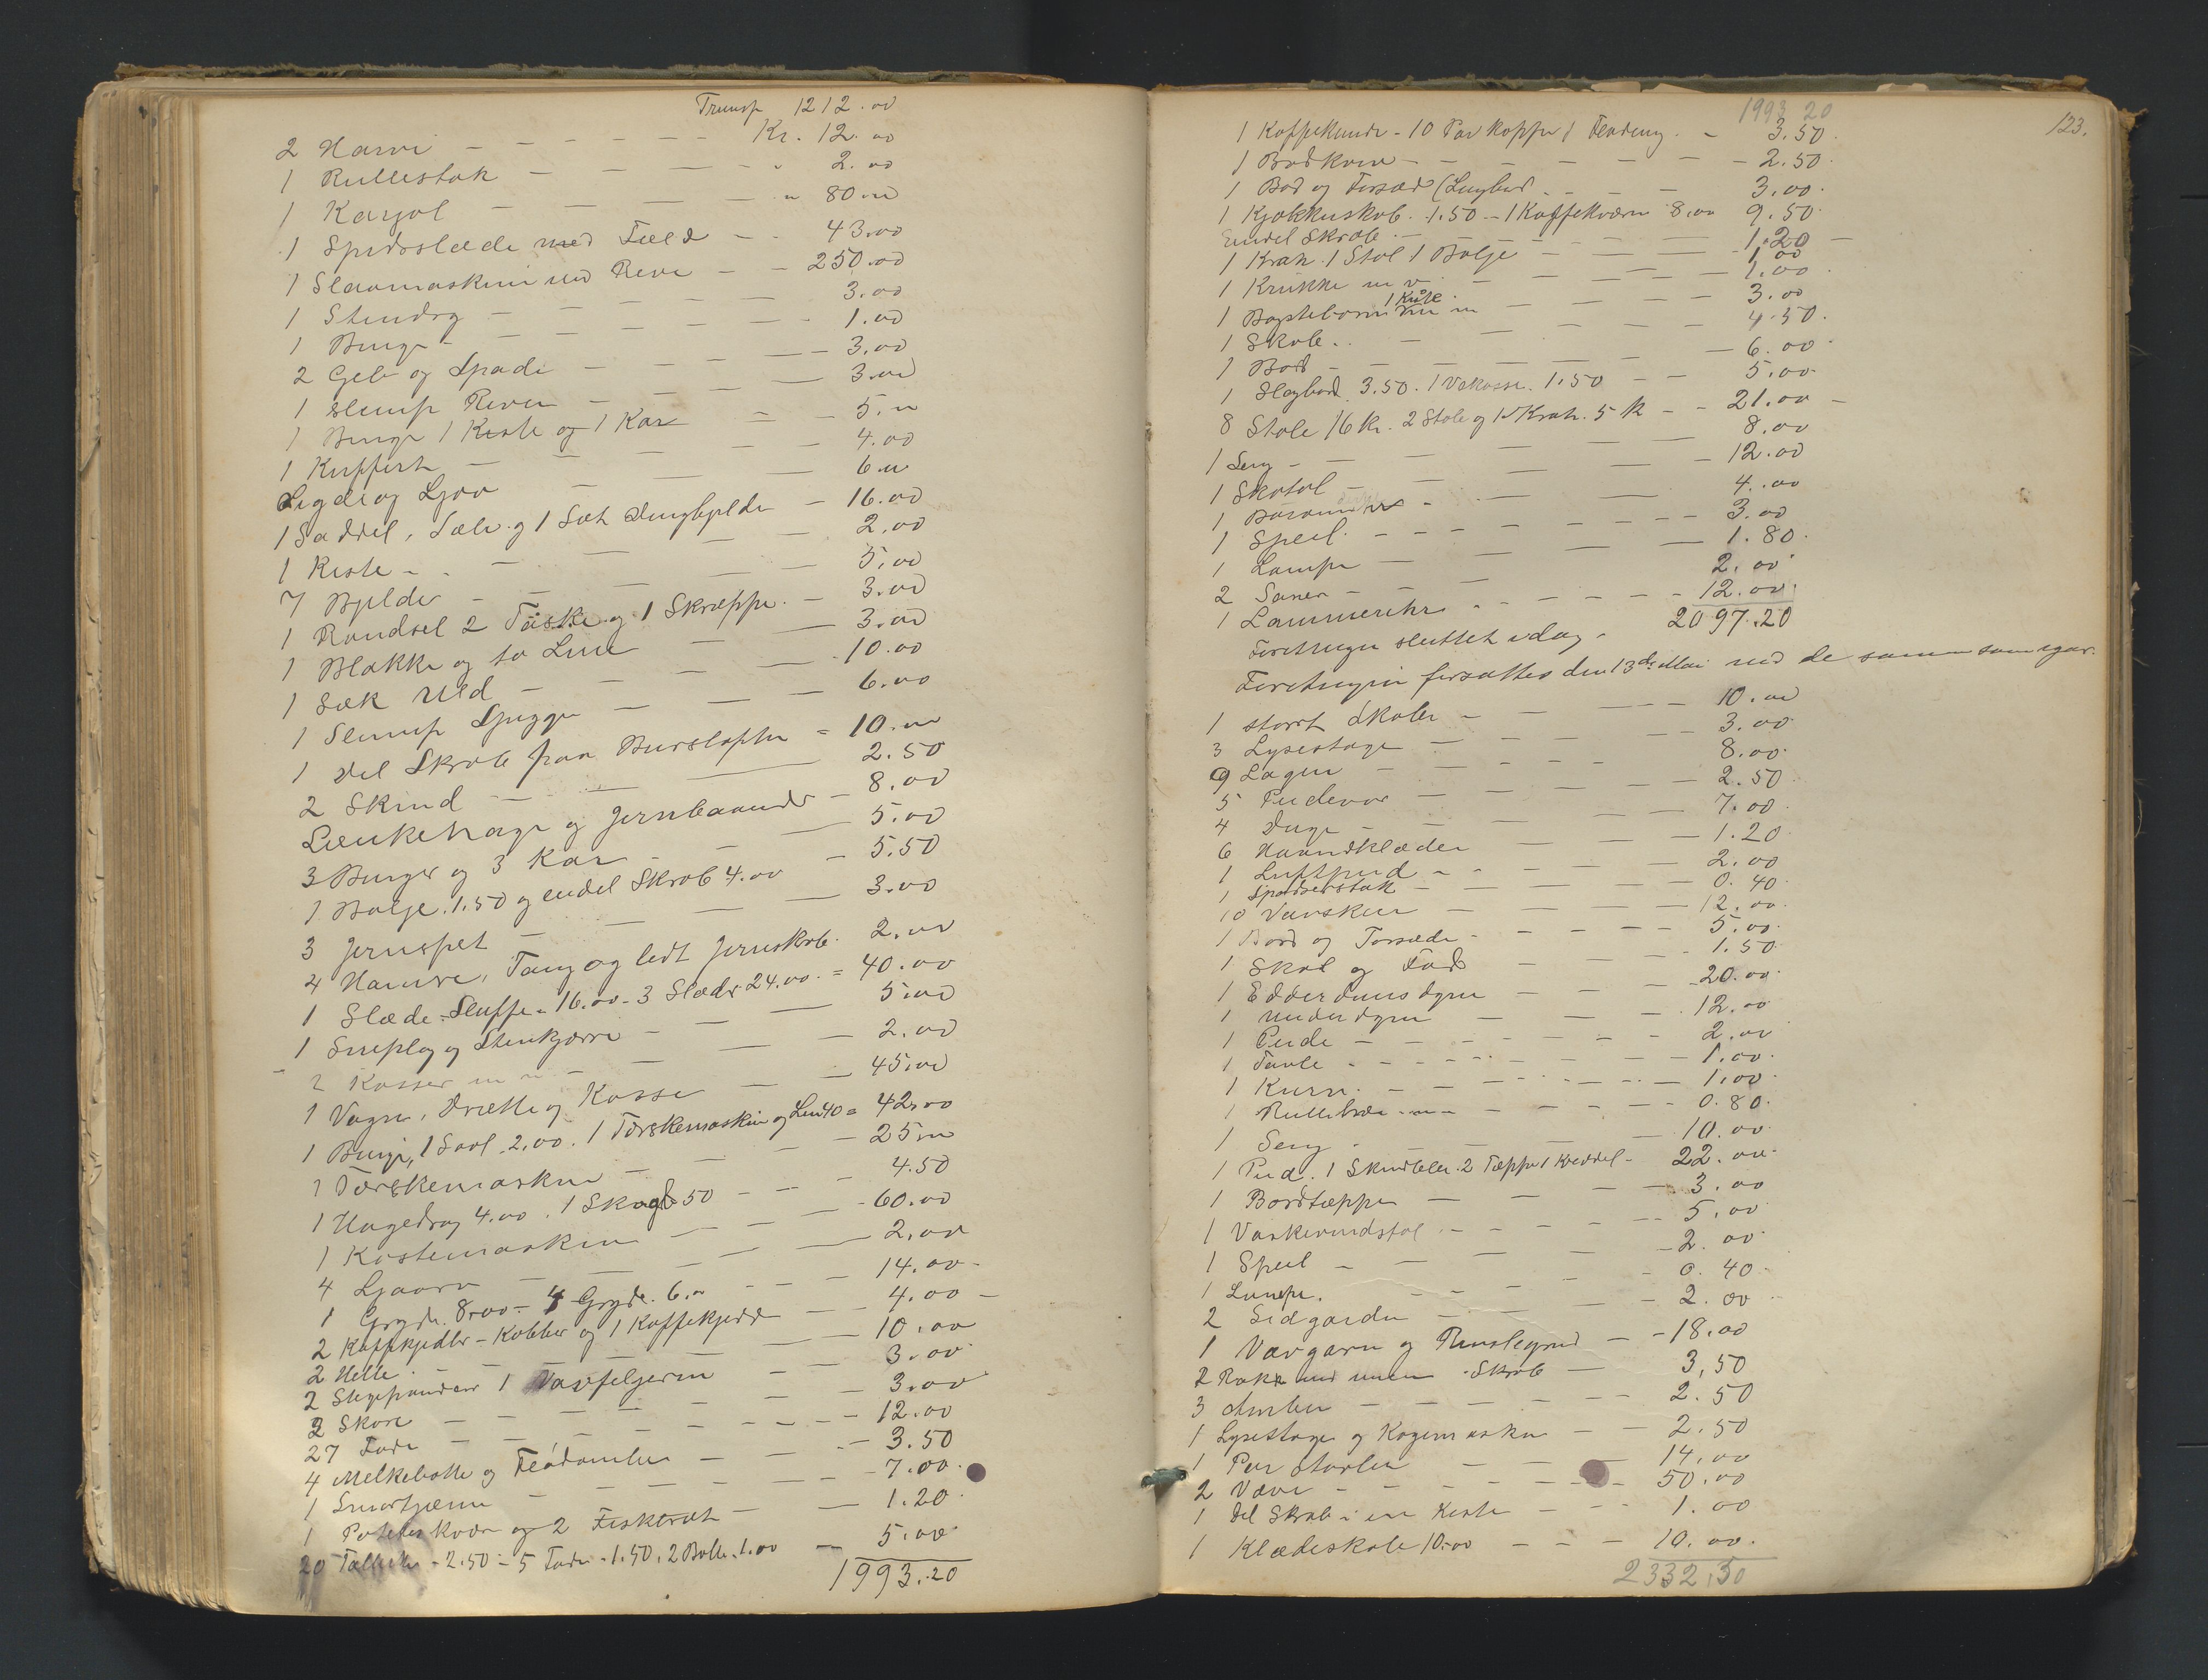 Transp 1212.00
2 Harve - - - - - Kr. 12.00
1 Rullestok - - - - 2.00
1 Karjol - - - - " 80.00
1 Spidsslæde med Fæld - - 43.00
1 Slaamaskine med Reve - - 250.00
1 Stendrog - - - 3.00
1 Binge - - - 1.00
2 Greb og Spade - - - 3.00
1 slump River - - - 3.00
1 Binge 1 Kiste og 1 Kar - - 5.00
1 Kuffert - - - 4.00
Sigde og Ljaa - - 6.00
1 Saddel, Sæle og 1 Sæt Dungbjelder - 16.00
1 Kiste - - - 2.00
7 Bjelder - - - 5.00
1 Randsel 2 Taske og 1 Skræppe. - 3.00
1 Blakke og to Line - - 3.00
1 Sæk Uld - - - 10.00
1 Slump - - 6.00
1 Del Skrab paa - 10.00
2 Skind - - 2.50
Lænkehage og Jernbaand - 8.00
3 Binger og 3 Kar - - 5.00
1 Balje. 1.50 og endel Skrab 4.00 - 5.50
3 Jernspet - - - 3.00
4 Hamre, Tang og lidt Jernskrab. 2.00
1 Slæde-Sluffe - 16.00 - 3 Slæder 24.00 = 40.00
1 Sneplog og Stenkjærre - - 5.00
2 Kasser m m - - - 2.00
1 Vogn, Drætte og Kasse - - 45.00
1 Binge, 1 Saal 2.00. 1 Tærskemaskin og Lin 40 = 42.00
1 Tærskemaskine - - - 25.00
1 Hagedrag 4.00. 1 50 - - 4.50
1 Kastemaskine - - - 60.00
4 Ljaarv - - - 2.00
1 Gryde. 8.00 - 4 Gryde. 6.00 - - 14.00
2 Kaffekjedler - Kobber og 1 Kaffekjedel - - 4.00
2 Helle. - - - 10.00
2 Stegepander 1 Vaffeljern - - 3.00
2 Skore - - - 3.00
27 Fade - - - 12.00
4 Melkebøtte og Fløtambur - - 3.50
1 Smørtjærne - - - 7.00
1 Potetes Kværn og 2 - - 1.20
20 Tallerken - 2.50 - 5 Fade - 1.50. 2 Boller. 1.00 - 5.00
1993.20
1993 20
123.
1 Kaffekande - 10 Par kopper 1 - 3.50
1 Brødkorv - - - - 2.50
1 Bord og Forsæde (Langbord - - - 3.00
1 Kjøkkenskab. 1.50 - 1 Kaffekværn 8.00 9.50
Endel Skrab - - - - 1.20
1 Krak. 1 Stol 1 Balje - - - 1.00
1 Krukke m v - - - 1.00
1 Kiste
1 m m - - - 3.00
1 Skab - - - 4.50
1 Bord - - - 6.00
1 Slagbord. 3.50. 1 Vekasse. 1.50 - - 5.00
8 Stole 16 kr. 2 Stole og 1 Krak. 5 k - - 21.00
1 Seng - - - 8.00
1 Skatol - - - 12.00
1 - - 4.00
1 Speil - - - 3.00
1 Lampe - - - 1.80
2 - - - 2.00
1 Lammeuhr - - - 12.00
2097.20
Forretningen sluttet idag -
Forretningen fortsattes den 13de Mai med de samme som igar.
1 stort Skab - - - 10.00
3 Lysestage - - - 3.00
9 Lagen - - - 8.00
5 Pudevar - - - 2.50
4 Duge - - - 7.00
6 Haandklæder - - - 1.20
1 Luftpud - - - 2.00
1 Spadserstok - - - 0.40
10 Vævskeer - - - 12.00
1 Bord og Forsæde - - - 5.00
1 Skab og Fad - - - 1.50
1 Edderduns dyne - - - 20.00
1 Under dyne - - - 12.00
1 Pude - - - 2.00
1 Tavle - - - 1.00
1 Kurv - - - 1.00
1 - - - 0.80
1 Seng - - - 10.00
1 Pud. 1 Skindfeld. 2 Tæppe 1 Kvedel - 22.00
1 Bordtæppe - - - 3.00
1 Vaskevandsfal - - - 5.00
1 Speil - - - 2.00
1 Lampe. - - - 0.40
2 Sidgarder - - - 2.00
1 Vævgarn og - - 18.00
2 Rokk med annen Skrab - 3.50
3 Amber - - - 2.50
1 Lysestage og Kagemaskin - - 2.50
1 Par støvler - - - 14.00
2 Væve - - - 50.00
1 del Skrab i en Kiste - - 1.00
1 Klædeskab 10.00 - - - 10.00
2332.50